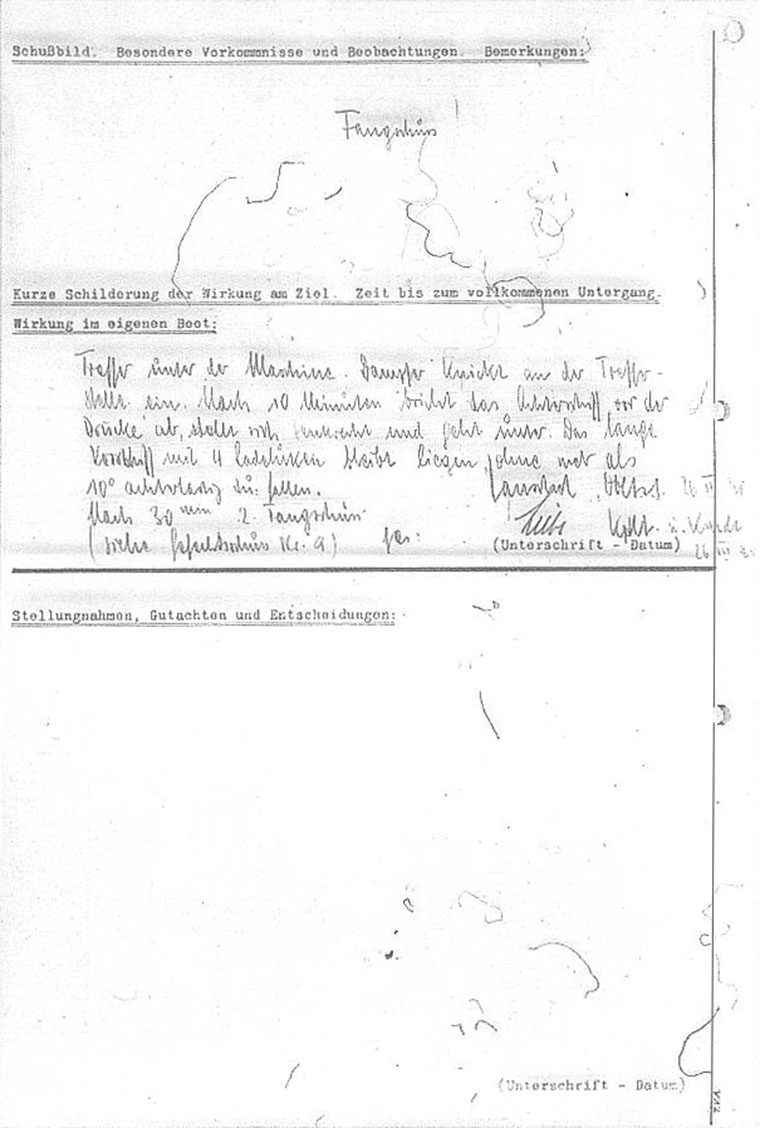 Schußbild. Besondere Vorkommnisse und Beobachtungen. Bemerkungen:
Fangschuss
Kurze Schilderung der Wirkung am Ziel. Zeit bis zum vollkommenen Untergang.
Wirkung im eigenen Boot:
Treffer unter der Maschine. Dampfer knickt an der Treffer-
stelle ein. Nach 10 Minuten bricht das Achterschiff vor der
Brücke ab, stellt sich senkrecht und geht unter. Das lange
Vorschiff mit 4 Ladeluken bleibt liegen, ohne mehr als
10° achterlastig zu fallen.
Oblt.z.S. 26 III
Nach 30 min 2. Fangschuss
(siehe Gefechtsschuss Nr. 9) gez:
Kptlt. u. Kmdt
(Unterschrift - Datum)
26 III
Stellungnahmen, Gutachten und Entscheidungen:
(Unterschrift - Datum)